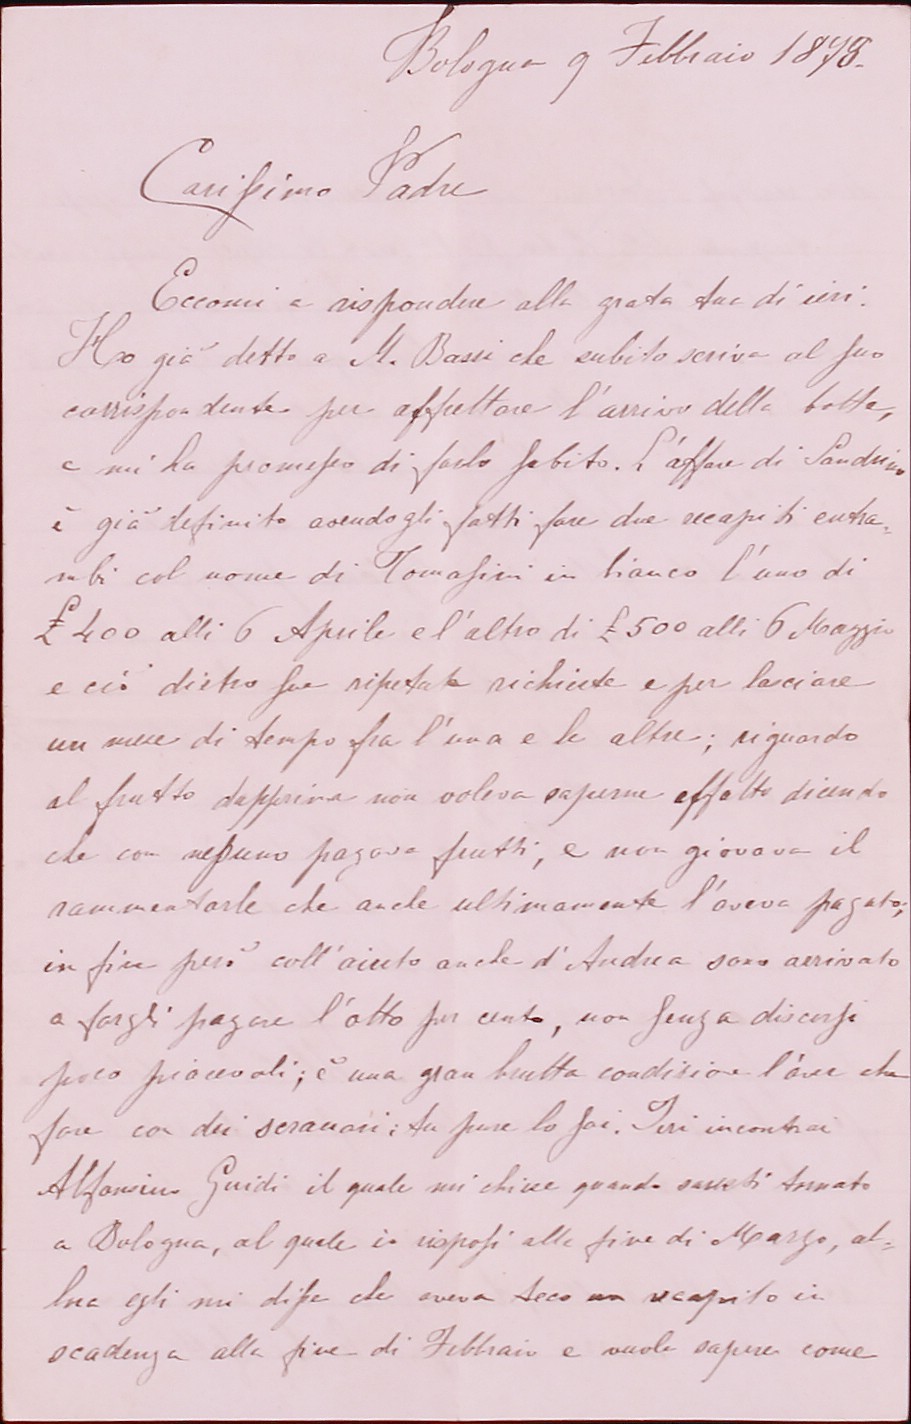 Bologna 9 Febbraio 1878.
Carissimo Padre
Eccomi a rispondere alla grata tua di ieri.
Ho già detto a M. Bassi che subito scriva al suo
corrispondente per affrettare l'arrivo della botte,
e mi ha promesso di farlo subito. L'affare di Sandrino
è già definito avendogli fatti fare due recapiti entra=
mbi col nome di Tomasini in bianco l'uno di
£ 400 alli 6 Aprile e l'altro di £ 500 alli 6 Maggio
e ciò dietro sue ripetute richieste e per lasciare
un mese di tempo fra l'una e le altre; riguardo
al frutto dapprima non voleva saperne affatto dicendo
che con nessuno pagava frutti, e non giovava il
rammentarle che anche ultimamente l'aveva pagato;
in fine però coll'aiuto anche d'Andrea sono arrivato
a fargli pagare l'otto per cento, non senza discorsi
poco piacevoli; è una gran brutta condizione l'aver che
fare con dei scranari: tu pure lo sai. Ieri incontrai
Alfonsino Guidi il quale mi chiese quando saresti tornato
a Bologna, al quale io risposi alla fine di Marzo, al=
lora egli mi disse che aveva teco un recapito in
scadenza alla fine di Febbraio e vuole sapere come